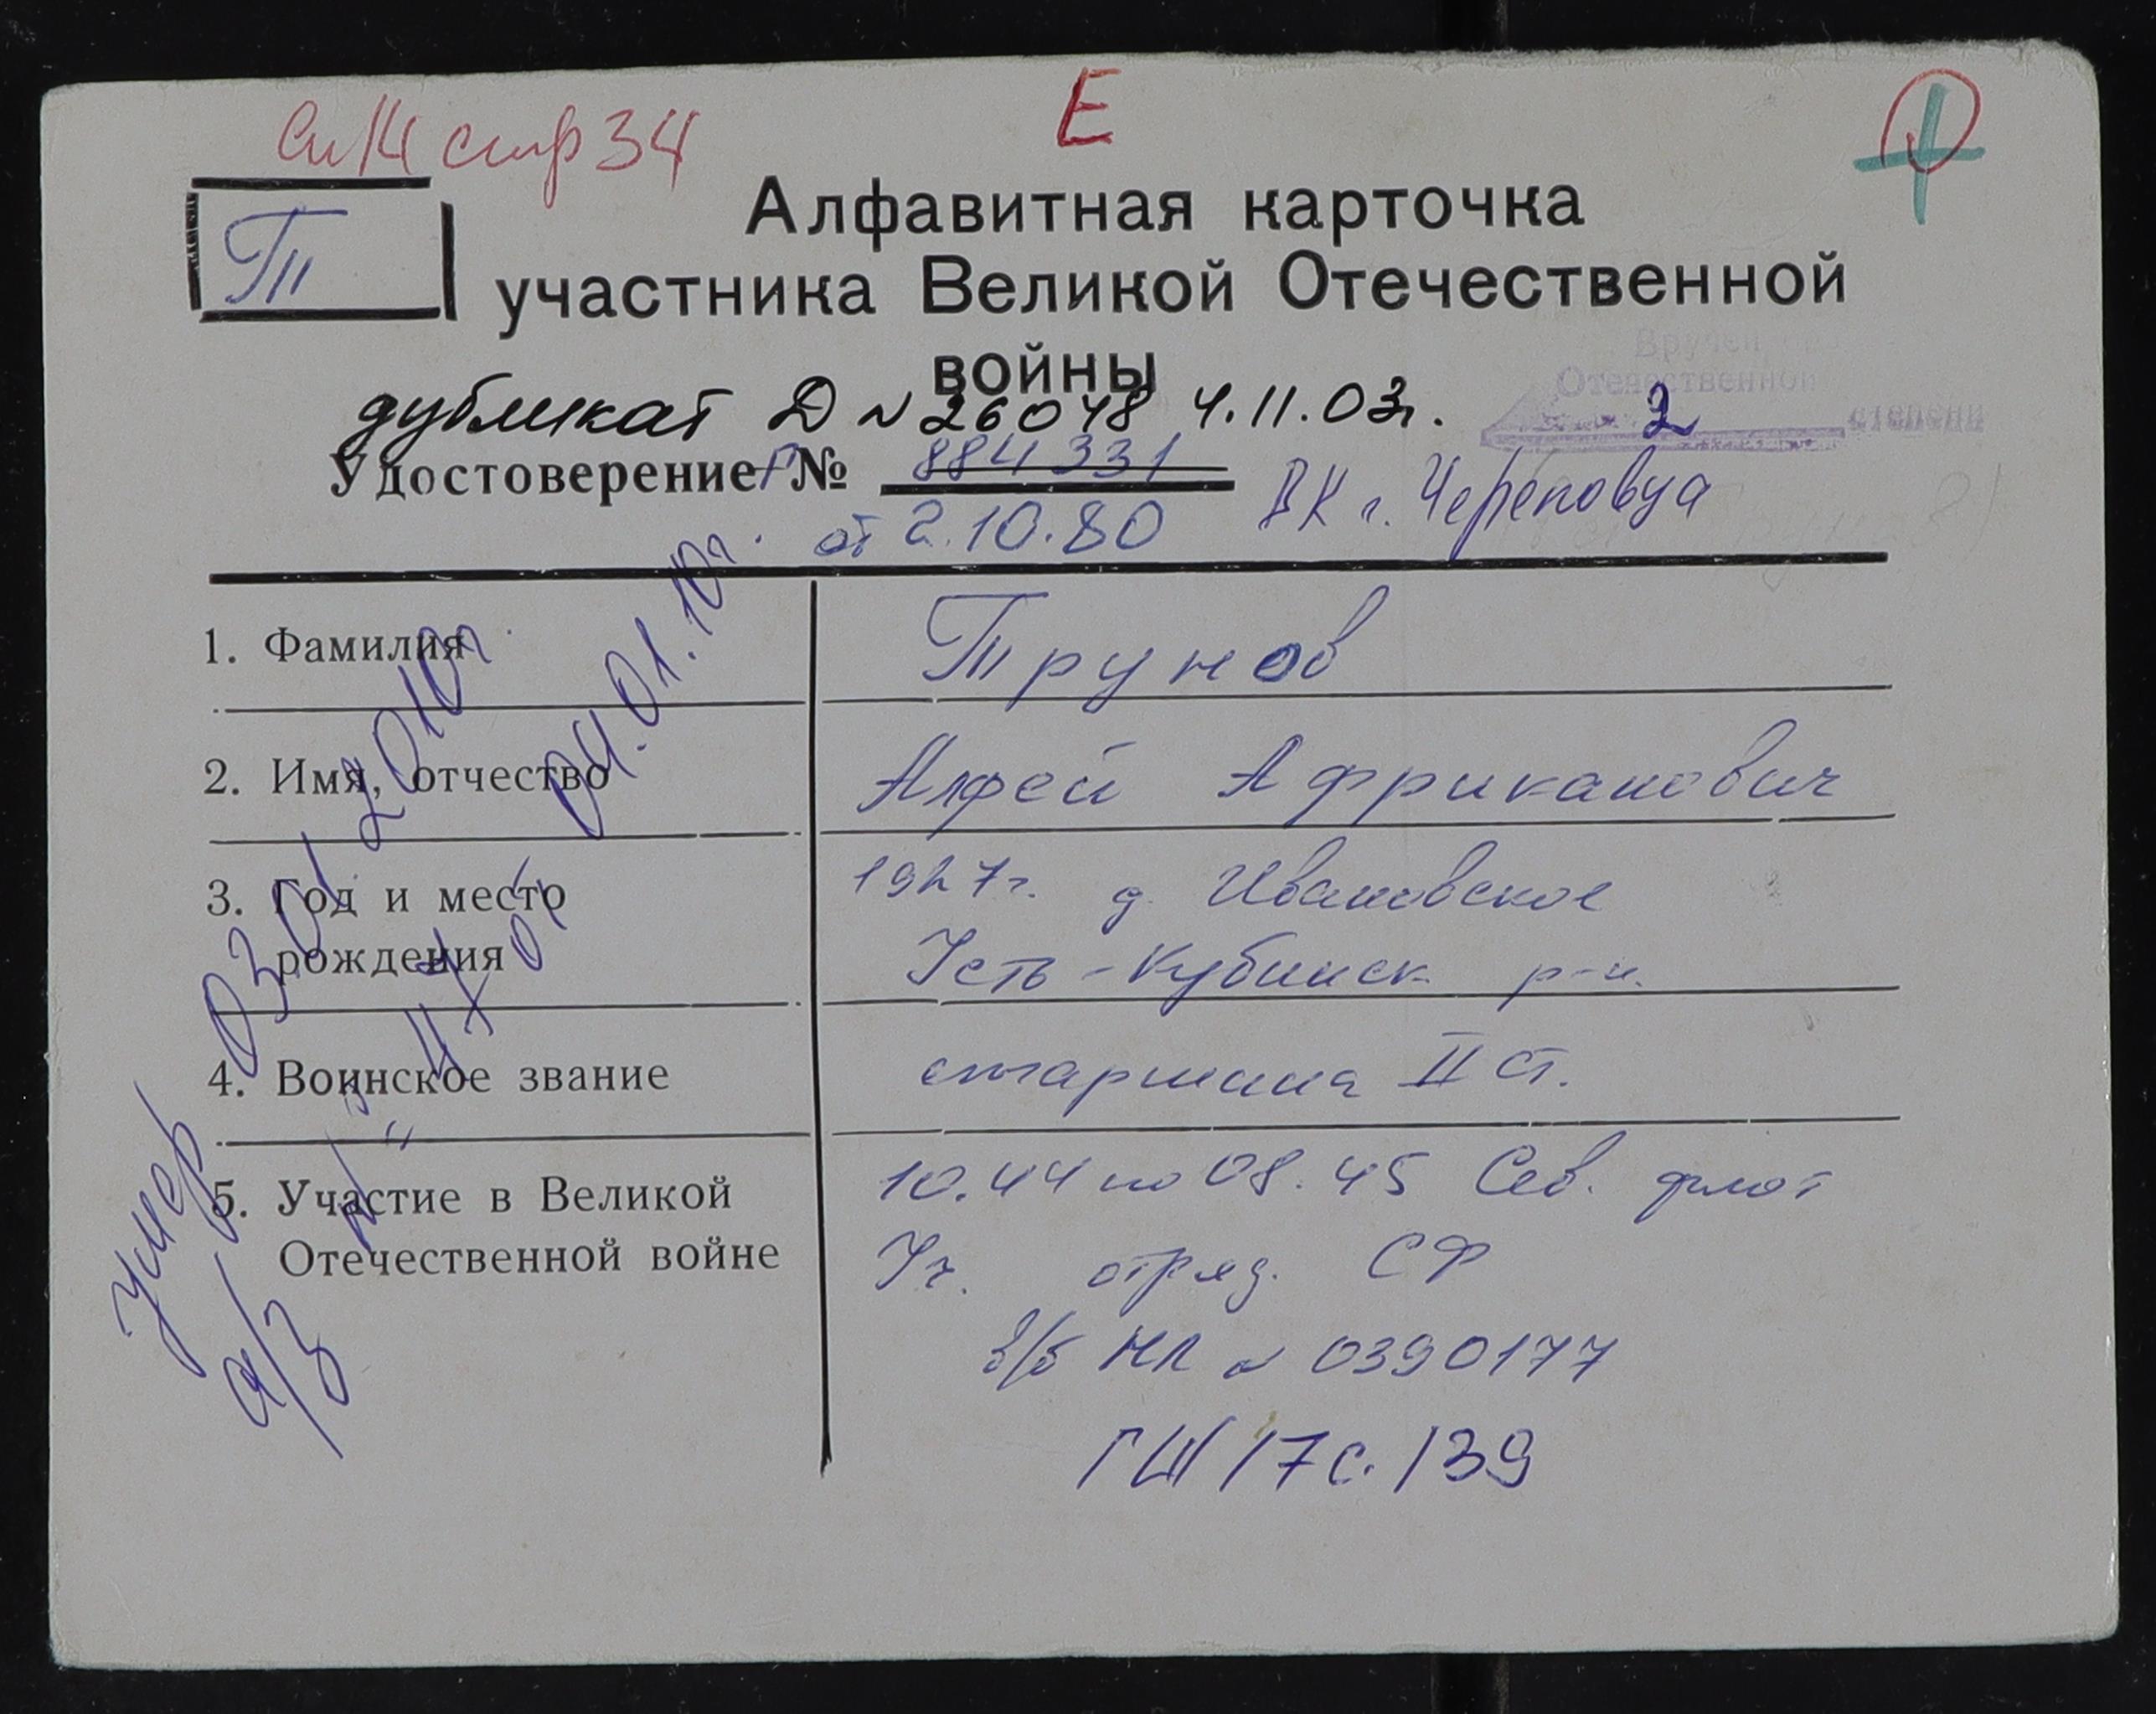 стр 34
Е
Т
Алфавитная карточка
участника Великой Отечественной
войны
Вручен
Отечественной
2 степени
дубликат Д № 26048 4.11.03г.
Удостоверение Г № 884331
от 2.10.80
ВК г. Череповца
1. Фамилия
Трунов
2. Имя, отчество
Алфей Африканович
3. Год и место
рождения
1927г. д. Ивановское
Усть-Кубинск. р-н.
4. Воинское звание
старшина II ст.
5. Участие в Великой
Отечественной войне
10.44 по 08.45 Сев. флот
Уч. отряд. СФ
в/б МЛ № 0390177
ГШ/17с./39
умер 03.01.2010г.
а/з № 4 от 04.01.10г.